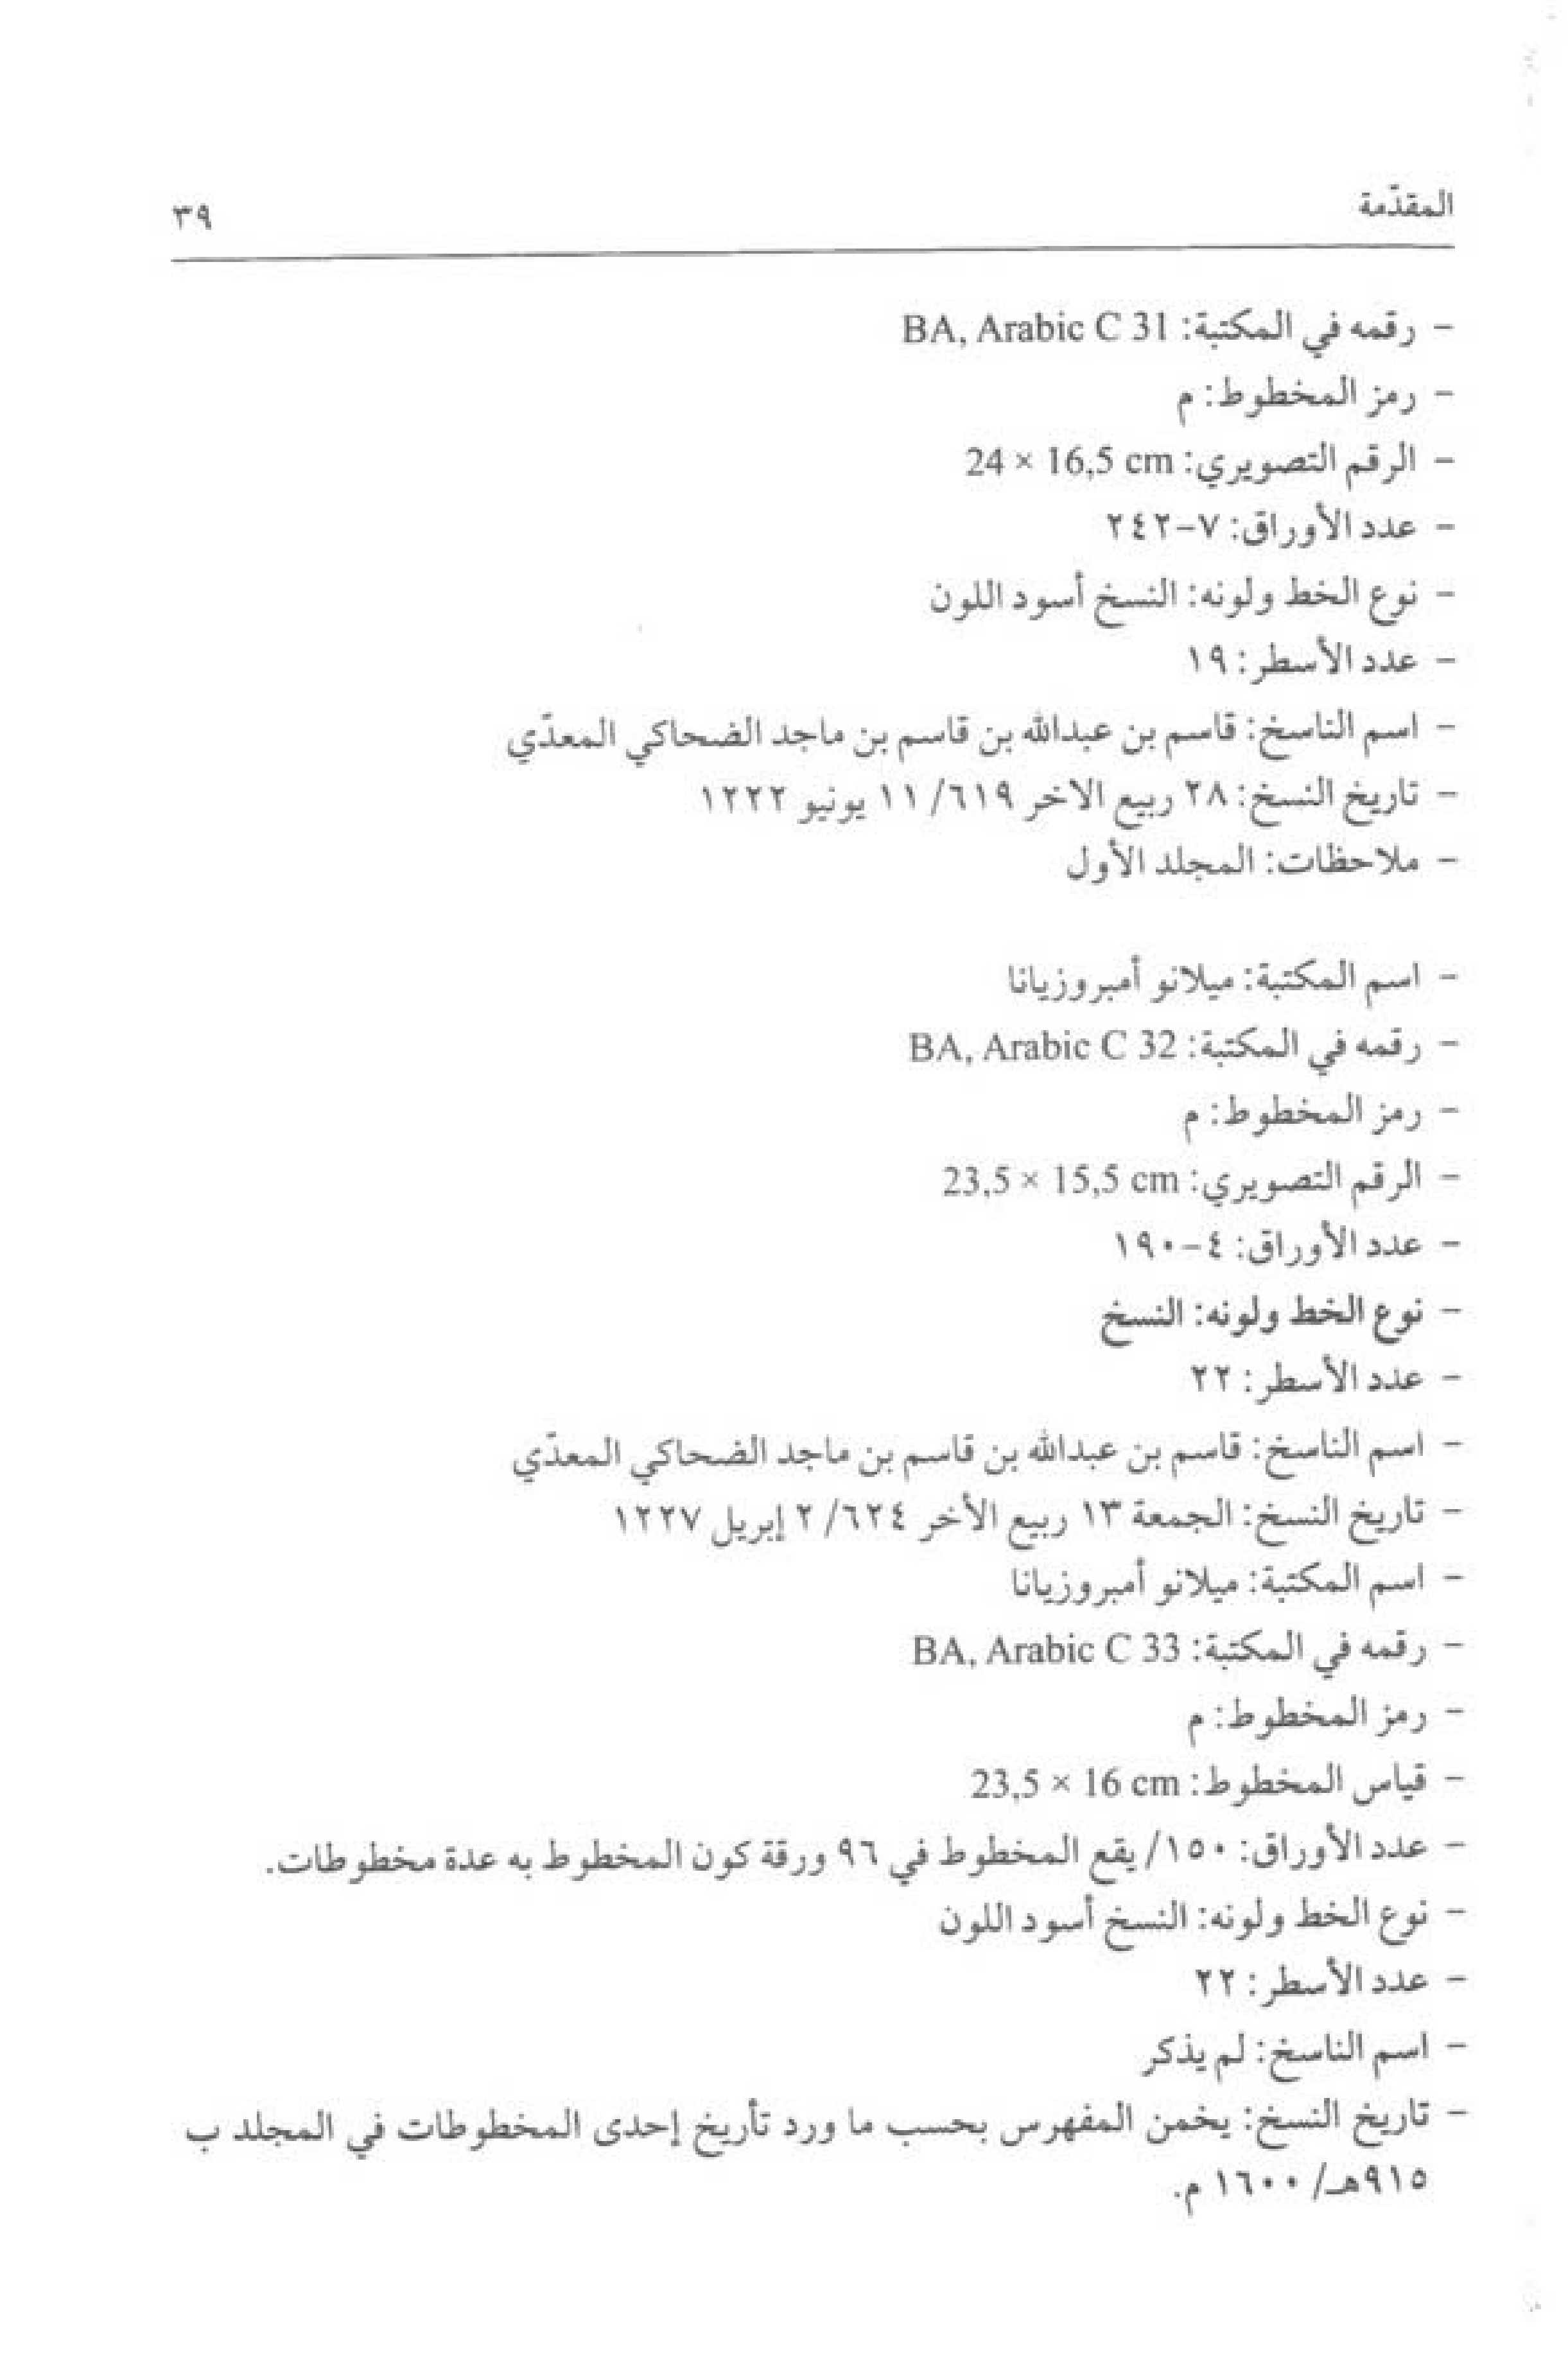 المقدّمة ٣٩
- رقمه في المكتبة: BA, Arabic C 31
- رمز المخطوط: م
- الرقم التصويري: 24 × 16,5 cm
- عدد الأوراق: ٧-٢٤٢
- نوع الخط ولونه: النسخ أسود اللون
- عدد الأسطر: ١٩
- اسم الناسخ: قاسم بن عبدالله بن قاسم بن ماجد الضحاكي المعدّي
- تاريخ النسخ: ٢٨ ربيع الاخر ٦١٩/ ١١ يونيو ١٢٢٢
- ملاحظات: المجلد الأول
- اسم المكتبة: ميلانو أمبروزيانا
- رقمه في المكتبة: BA, Arabic C 32
- رمز المخطوط: م
- الرقم التصويري: 23,5 × 15,5 cm
- عدد الأوراق: ٤-١٩٠
- نوع الخط ولونه: النسخ
- عدد الأسطر: ٢٢
- اسم الناسخ: قاسم بن عبدالله بن قاسم بن ماجد الضحاكي المعدّي
- تاريخ النسخ: الجمعة ١٣ ربيع الأخر ٦٢٤/ ٢ إبريل ١٢٢٧
- اسم المكتبة: ميلانو أمبروزيانا
- رقمه في المكتبة: BA, Arabic C 33
- رمز المخطوط: م
- قياس المخطوط: 23,5 × 16 cm
- عدد الأوراق: ١٥٠/ يقع المخطوط في ٩٦ ورقة كون المخطوط به عدة مخطوطات.
- نوع الخط ولونه: النسخ أسود اللون
- عدد الأسطر: ٢٢
- اسم الناسخ: لم يذكر
- تاريخ النسخ: يخمن المفهرس بحسب ما ورد تأريخ إحدى المخطوطات في المجلد ب
٩١٥هـ/ ١٦٠٠ م.